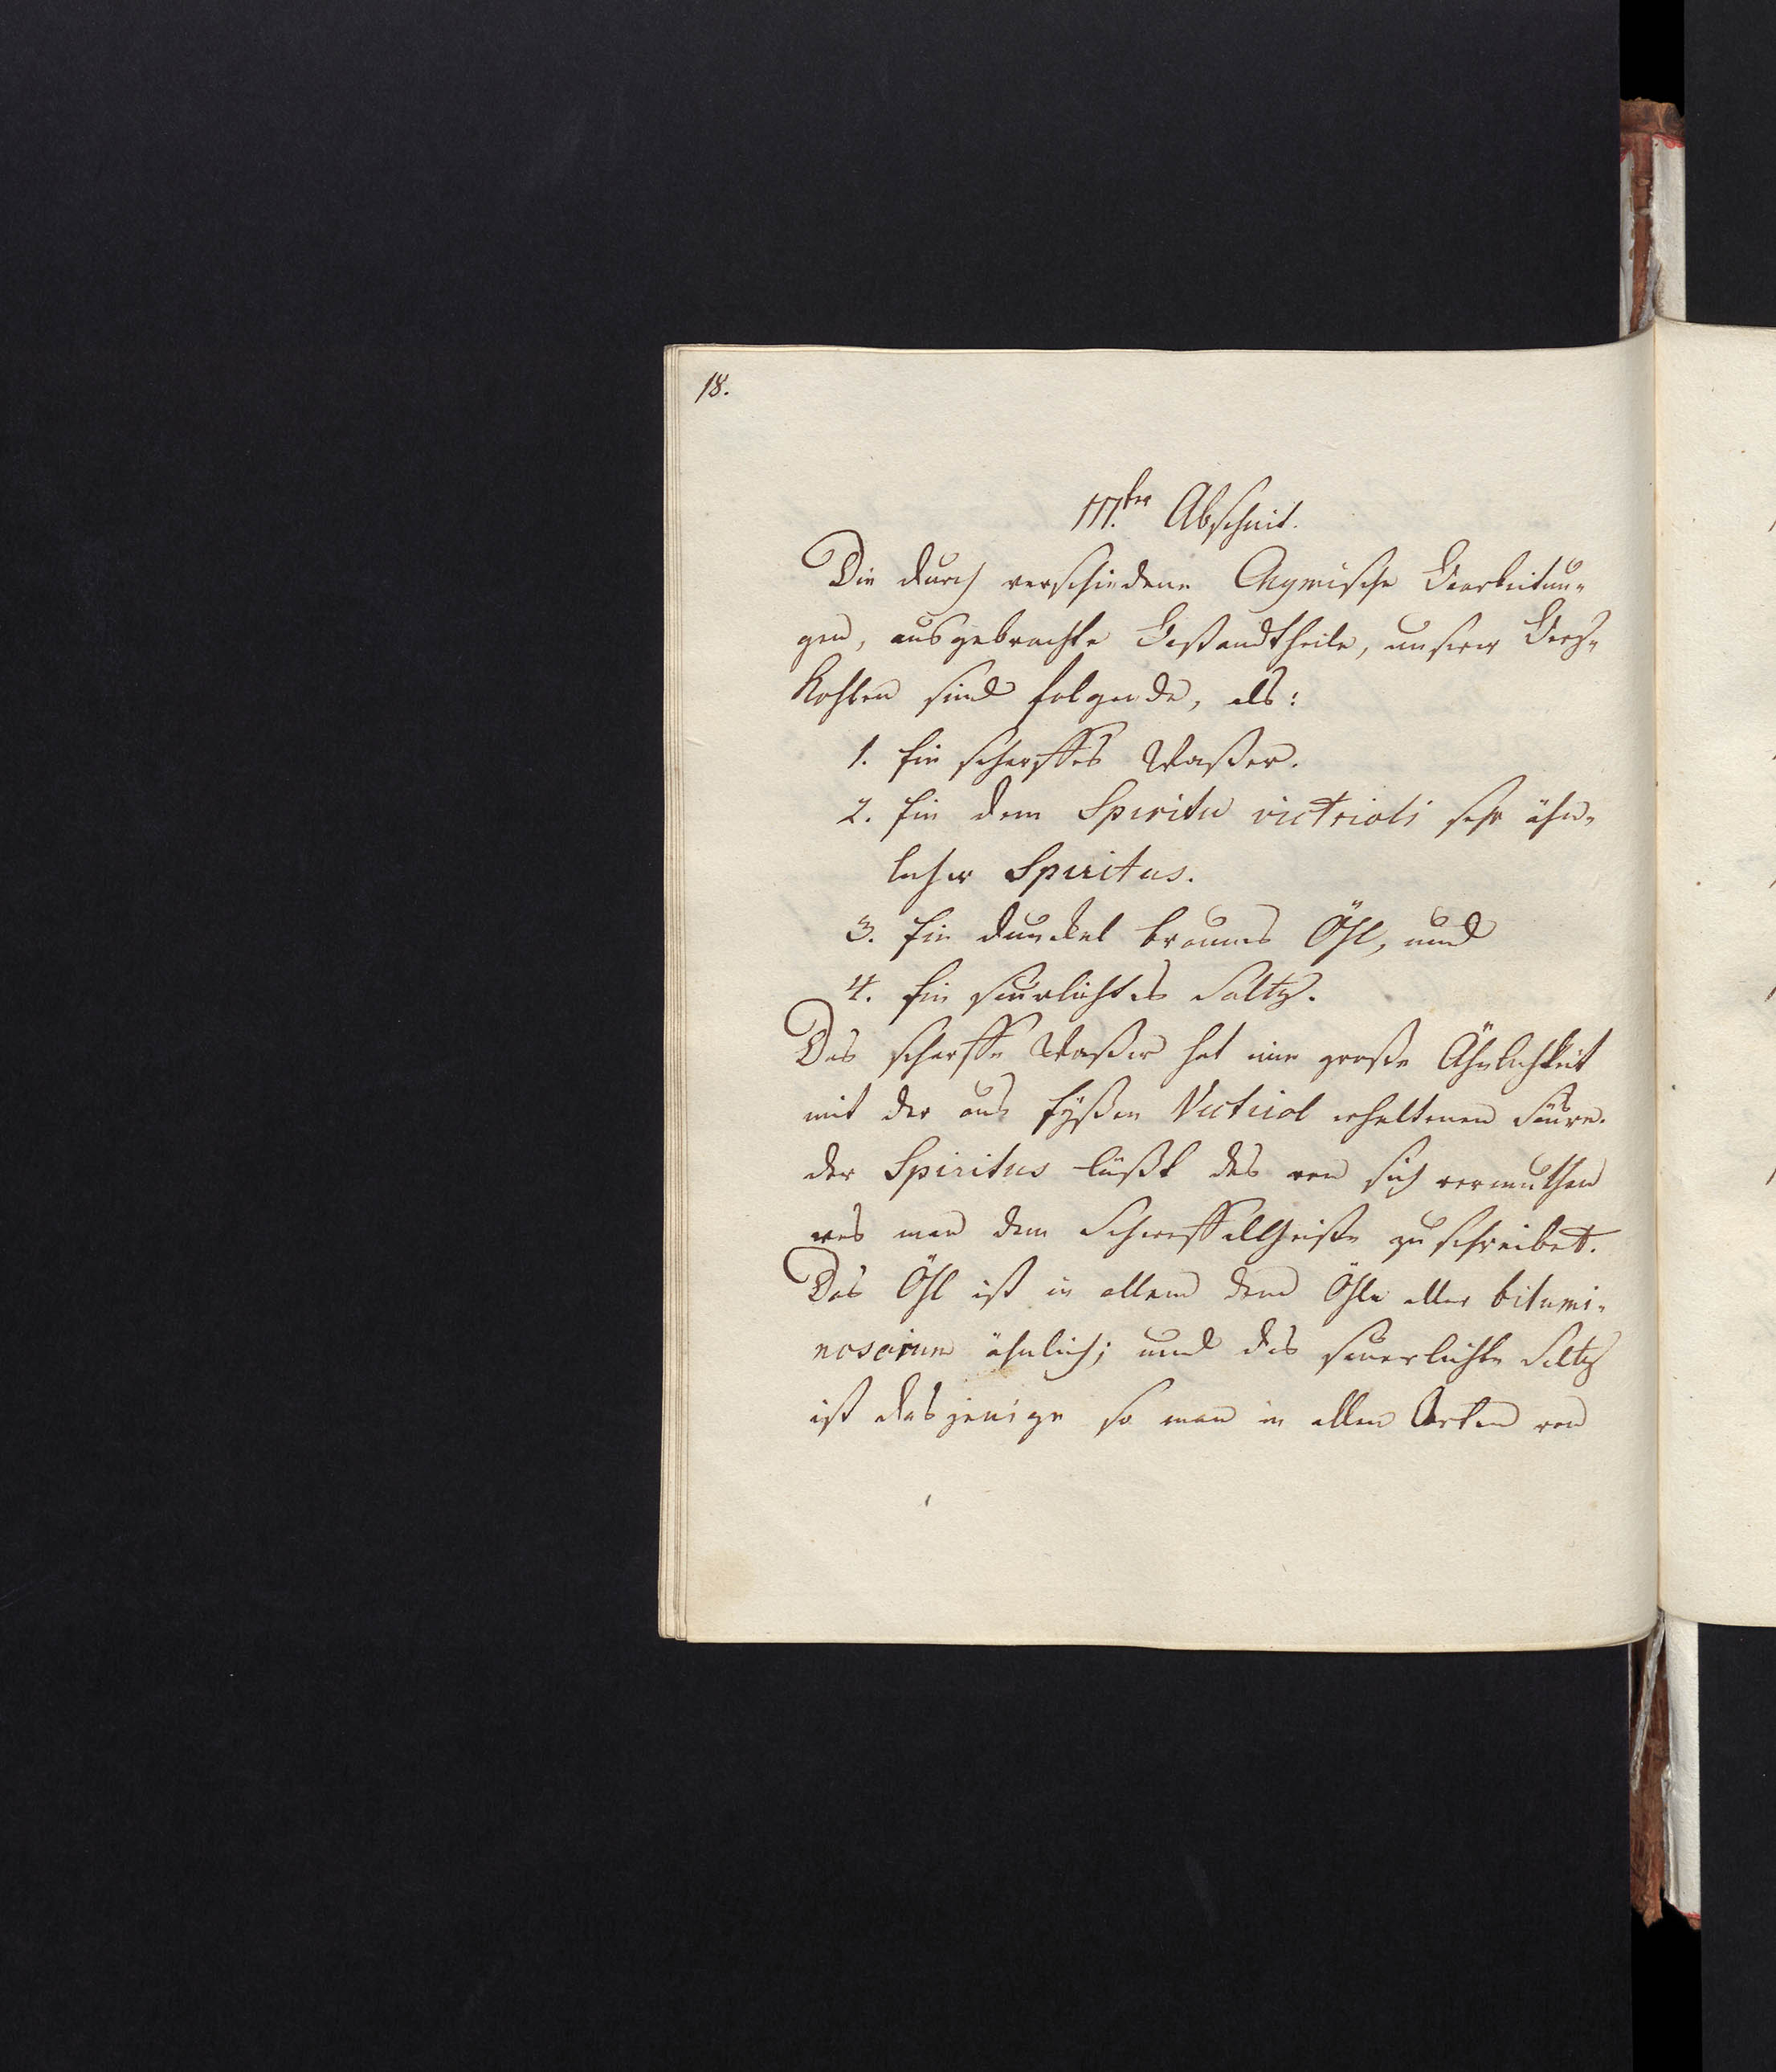 18.
III.ter Abschnit.
Die durch verschiedene Chymische Bearbeitun-
gen, ausgebrachte Bestandtheile, unserer Berg-
Kohlen sind folgende, als:
1. Ein scharffes Waßer.
2. Ein dem Spiritu victrioli sehr ähn-
licher Spiritus.
3. Ein dunckel braunes Öhl, und
4. Ein säurlichtes Saltz.
Das scharffe Waßer hat eine große Ähnlichkeit
mit der aus Victriol erhaltenen Säure.
der Spiritus läßt das von sich vermuthen
was man dem Schweffelgeiste zuschreibet.
Das Öhl ist in allem dem Öhle aller bitumi-
nosorum ähnlich; und das säuerlichte Saltz
ist dasjenige so man in allen Arten von